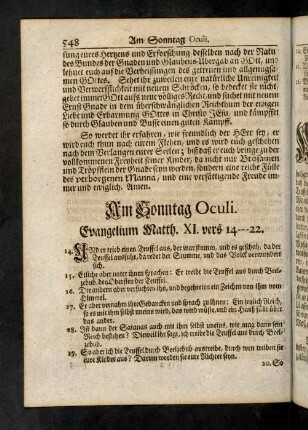 548 Am Sonntag Oculi.
sung eures Hertzens und Erforschung desselben nach der Natur
des Bundes der Gnaden und Glaubens-Ubergab an GOtt, und
lehnet euch auf die Verheissungen des getreuen und allgenugsa-
men GOttes. Sehet ihr zuweilen eure natürliche Unreinigkeit
und Verwerfflichkeit mit neuen Schröcken, so bedecket sie nicht,
gebet immer GOtt aufs neue völliges Recht, und suchet mit neuem
Ernst Gnade in dem überschwänglichen Reichthum der ewigen
Liebe und Erbarmung GOttes in Christo JEsu, und kämpffet
so durch Glauben und Busse euren guten Kampff.
So werdet ihr erfahren, wie freundlich der HErr sey, er
wird euch thun nach eurem Flehen, und es wird euch geschehen
nach dem Verlangen eurer Seelen; biß daß er euch bringe zu der
vollkommenen Freyheit seiner Kinder, da nicht nur Brosamen
und Tröpfflein der Gnade seyn werden, sondern eine reiche Fülle
des verborgenen Manna, und eine versättigende Freude immer
und ewiglich. Amen.
Am Sonntag Oculi.
Evangelium Matth. XI. vers 14---22.
14. UNd er trieb einen Teuffel aus, der war stumm, und es geschah, da der
Teuffel ausfuhr, da redet der Stumme, und das Volck verwundert
sich.
15. Etliche aber unter ihnen sprachen: Er treibt die Teuffel aus durch Beel-
zebub den Obersten der Teuffel.
16. Die andern aber versuchten ihn, und begehreten ein Zeichen von ihm vom
Himmel.
17. Er aber vernahm ihre Gedancken und sprach zu ihnen: Ein jeglich Reich,
so es mit ihm selbst uneins wird, das wird wüste, und ein Hauß fället über
das ander.
18. Ist dann der Satanas auch mit ihm selbst uneins, wie mag dann sein
Reich bestehen? Dieweil ihr sagt, ich treibe die Teuffel aus durch Beel-
zebub.
19. So aber ich die Teuffel durch Beelzebub austreibe, durch wen treiben sie
eure Kinder aus? Darum werden sie eure Richter seyn.
20. So